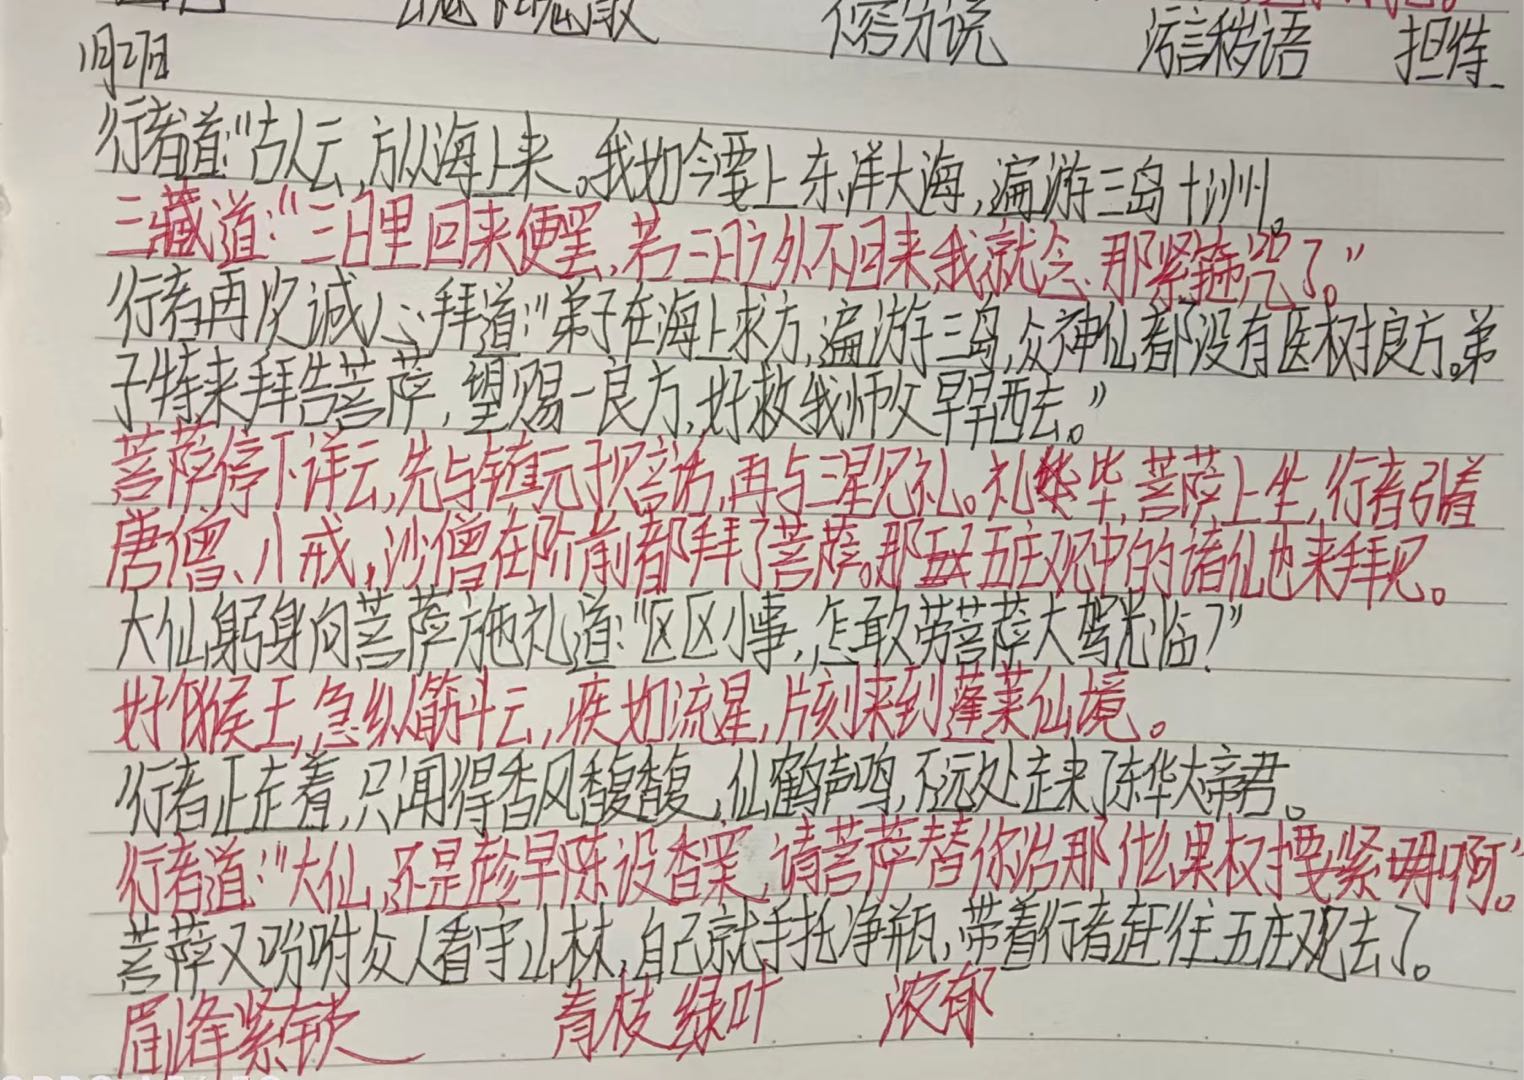 不容分说 污言秽语 担待
1月27日
行者道:“古人云,方从海上来。我如今要上东洋大海,遍游三岛十洲。
三藏道:“三日里回来便罢,若三日之外不回来,我就念那紧箍咒了。”
行者再度诚心拜道:“弟子在海上求方,遍游三岛,众神仙都没有医树良方。弟
子特来拜告菩萨,望赐一良方,好救我师父早早西去。”
菩萨停下祥云,先与镇元子说话,再与三星见礼。礼毕,菩萨上坐,行者引着
唐僧、八戒,沙僧在阶前都拜了菩萨。那五庄观中的诸仙也来拜见。
大仙躬身向菩萨施礼道:“区区小事,怎敢劳菩萨大驾光临?”
好个猴王,急纵筋斗云,疾如流星,片刻来到蓬莱仙境。
行者正走着,只闻得香风馥馥,仙鹤声鸣,不远处走来了东华大帝君。
行者道:“大仙,还是趁早陈设香案,请菩萨替你治那什么果树要紧啊。”
菩萨又吩咐众人看守山林,自己就手托净瓶,带着行者赶往五庄观去了。
眉峰紧锁 青枝绿叶 浓郁